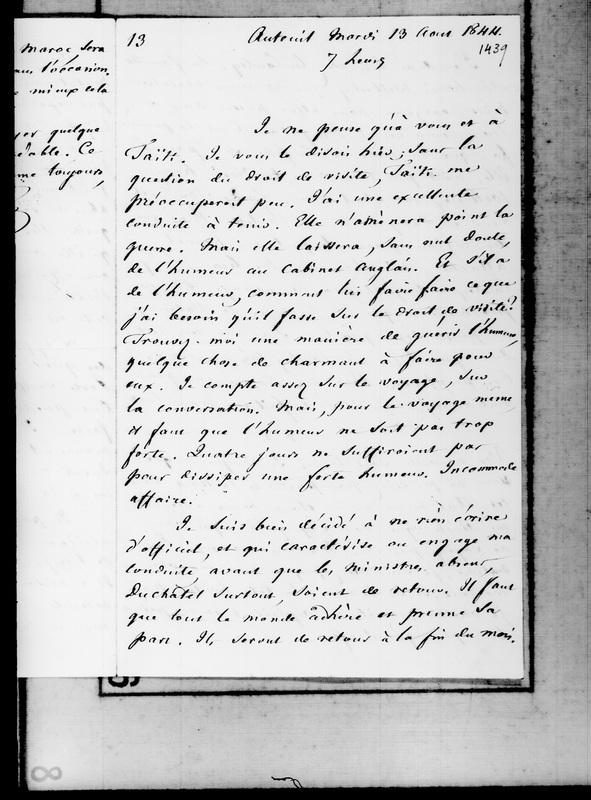 Maroc sera
l'occasion.
mieux cela
quelque
Ce
toujours,
13 Auteuil Mardi 13 Août 1844
1439
7 heures
Je ne pense qu'à vous et à
Taïti. Je vous le disais hier; sans la
question du droit de visite, Taïti me
préoccuperoit peu. J'ai une excellente
conduite à tenir. Elle n'amènera point la
guerre. Mais elle laissera, sans nul doute,
de l'humeur au Cabinet Anglais. Et s'il a
de l'humeur, comment lui faire faire ce que
j'ai besoin qu'il fasse sur le droit de visite?
Trouvez-moi une manière de guérir l'humeur,
quelque chose de charmant à faire pour
eux. Je compte assez sur le voyage, sur
la conversation. Mais, pour le voyage même
il faut que l'humeur ne soit pas trop
forte. Quatre jours ne suffiroient pas
pour dissiper une forte humeur. Incommode
affaire.
Je suis bien décidé à ne rien écrire
d'officiel, et qui caractérise ou engage ma
conduite, avant que les ministres absens,
Duchâtel surtout, soient de retour. Il faut
que tout le monde adhère et prenne sa
part. Ils seront de retour à la fin du mois.
8